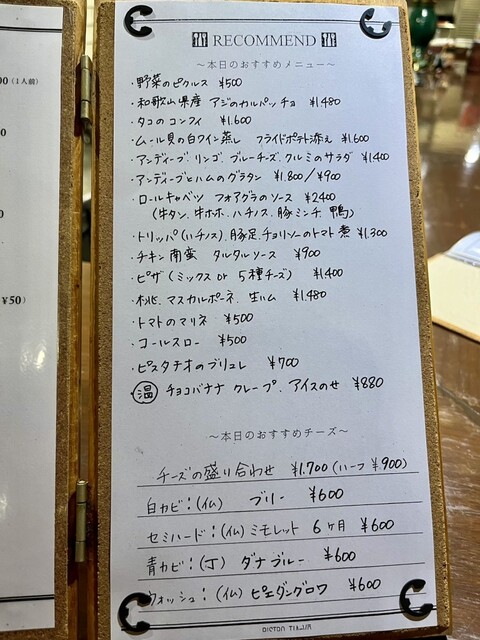 00(1人前)
0
0
¥50)
RECOMMEND
～本日のおすすめメニュー～
・野菜のピクルス ¥500
・和歌山県産 アジのカルパッチョ ¥1480
・タコのコンフィ ¥1.600
・ムール貝の白ワイン蒸し フライドポテト添え ¥1.600
・アンディーブ、リンゴ、ブルーチーズ、クルミのサラダ ¥1400
・アンディーブとハムのグラタン ¥1.800/¥900
・ロールキャベツ フォアグラのソース ¥2400
(牛タン、牛ホホ、ハチノス、豚ミンチ、鴨)
・トリッパ(ハチノス)、豚足、チョリソーのトマト煮 ¥1.300
・チキン南蛮 タルタルソース ¥900
・ピザ(ミックス or 5種チーズ) ¥1400
・桃、マスカルポーネ、生ハム ¥1.480
・トマトのマリネ ¥500
・コールスロー ¥500
・ピスタチオのブリュレ ¥700
温 チョコバナナ クレープ、アイスのせ ¥880
～本日のおすすめチーズ～
チーズの盛り合わせ ¥1.700(ハーフ ¥900)
白カビ:(仏) ブリー ¥600
セミハード:(仏)ミモレット 6ヶ月 ¥600
青カビ:(丁) ダナブルー ¥600
ウォッシュ:(仏)ピエダングロワ ¥600